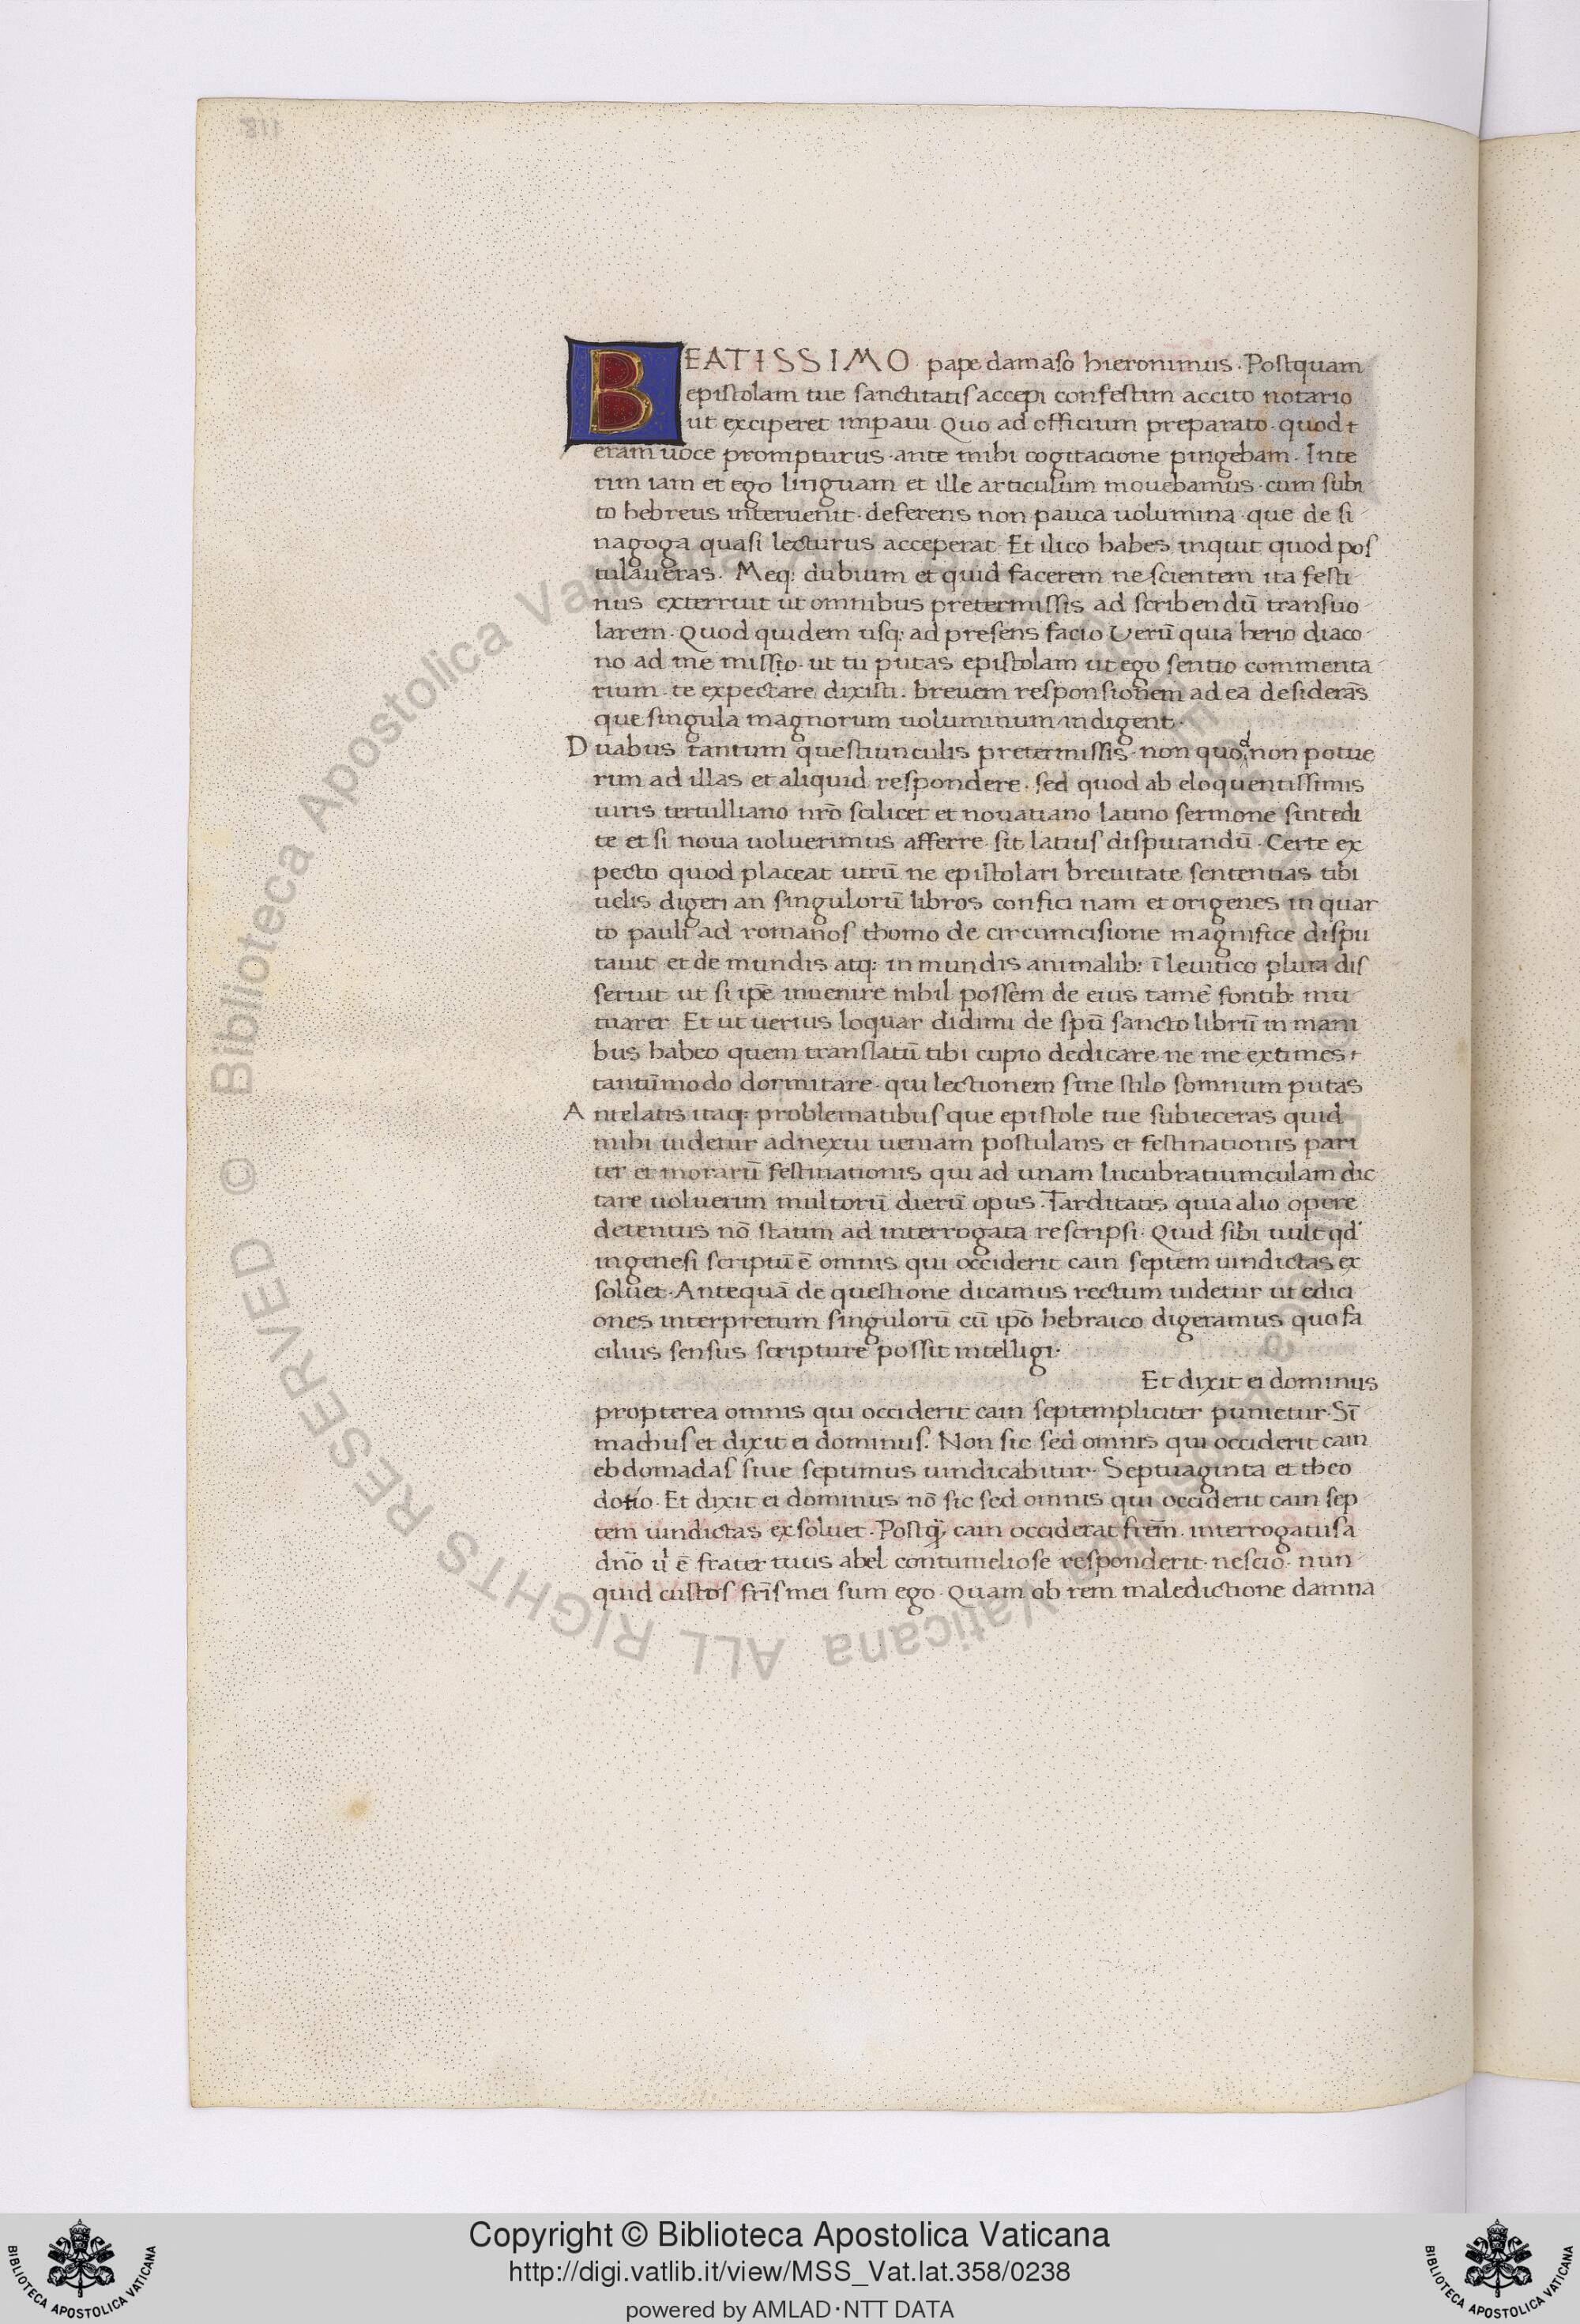 BEATISSIMO pape damaso hieronimus. Postquam
epistolam tue sanctitatis accepi confestim accito notario
ut exciperet imꝑaui. Quo ad officium preparato. quod
eram uoce prompturus. ante mihi cogitacione pingebam. Inte
rim iam et ego linguam et ille articulum mouebamus. cum subi
to hebreus interuenit. deferens non pauca uolumina. que de si
nagoga quasi lecturus acceperat. Et ilico habes inquit quod pos
tulaueras. Meq: dubium et quid facerem nescientem ita festi
nus exterruit ut omnibus pretermissis ad scribendū transuo
larem. Quod quidem usq: ad presens facio Uerū quia herio diaco
no ad me misso. ut tu putas epistolam ut ego sentio commenta
rium. te expectare dixisti. breuem responsionem ad ea desiderās
que singula magnorum uoluminum indigent.
Duabus tantum questiunculis pretermissis. non quod non potue
rim ad illas et aliquid respondere. sed quod ab eloquentissimis
uiris tertulliano nrō scilicet et nouatiano latino sermone sint edi
te et si noua uoluerimus afferre. sit latius disputandū. Certe ex
pecto quod placeat utrū ne epistolari breuitate sententias tibi
uelis digeri an singulorū libros confici nam et origenes in quar
to pauli ad romanos thomo de circumcisione magnifice dispu
tauit. et de mundis atq: in mundis animalib: ī leuitico plura dis
seruit ut si ipē inuenire nihil possem de eius tamē fontib: mu
tuarer. Et ut uerius loquar didimi de spū sancto librū in mani
bus habeo quem translatū tibi cupio dedicare ne me extimes
tantūmodo dormitare. qui lectionem sine stilo somnum putas
Antelatis itaq: problematibus que epistole tue subieceras quid
mihi uidetur adnexui ueniam postulans et festinationis pari
ter et morarū festinationis qui ad unam lucubratiumculam dic
tare uoluerim multorū dierū opus. Tarditatis quia alio opere
detentus nō statim ad interrogata rescripsi. Quid sibi uult qd
in genesi scriptū ē omnis qui occiderit cain septem uindictas ex
soluet. Antequā de questione dicamus rectum uidetur ut edici
ones interpretum singulorū cū ipō hebraico digeramus quo fa
cilius sensus scripture possit intelligi.
Et dixit ei dominus
propterea omnis qui occiderit cain septempliciter punietur. Sī
machus et dixit ei dominus. Non sic sed omnis qui occiderit cain
ebdomadas siue septimus uindicabitur. Septuaginta et theo
dotio. Et dixit ei dominus nō sic sed omnis qui occiderit cain sep
tem uindictas exsoluet. Postq̄ cain occiderat frēm. interrogatus a
dnō u' ē frater tuus abel contumeliose responderit. nescio. nun
quid custos frīs mei sum ego. Quam ob rem maledictione damna
© Biblioteca Apostolica Vaticana ALL RIGHTS RESERVED
Copyright © Biblioteca Apostolica Vaticana
http://digi.vatlib.it/view/MSS_Vat.lat.358/0238
powered by AMLAD·NTT DATA
BIBLIOTECA APOSTOLICA VATICANA
BIBLIOTECA APOSTOLICA VATICANA